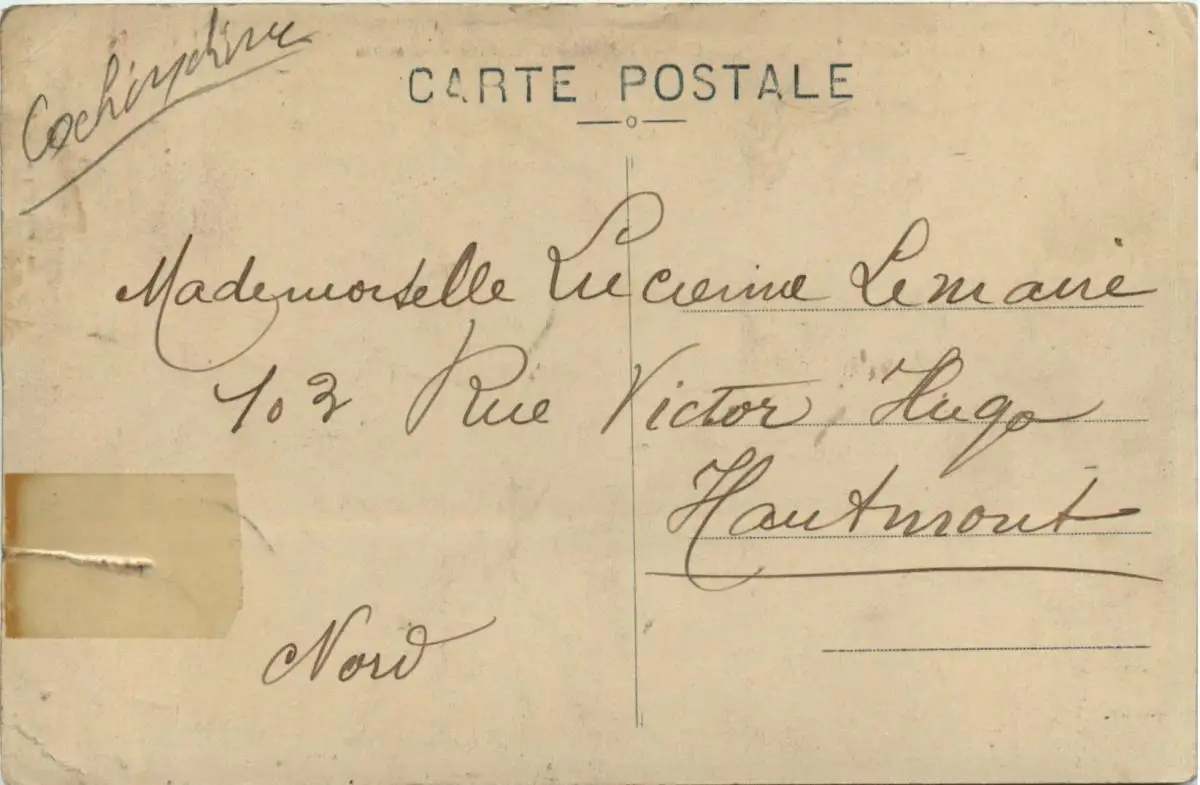 Cochinchine
CARTE POSTALE
Mademoiselle Lucienne Lemaire
103 Rue Victor Hugo
Hautmont
Nord